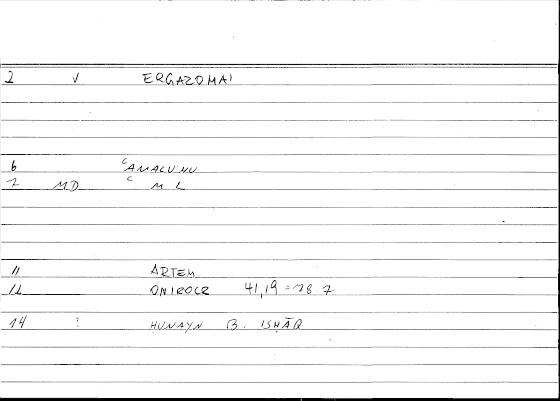 2 V ERGAZOMAI
6 ʿAMALUHU
7 MD ʿ M L
11 ARTEM
12 ONIROCR 41,19 = 78 7
14 ? ḤUNAYN B. ISḤĀQ